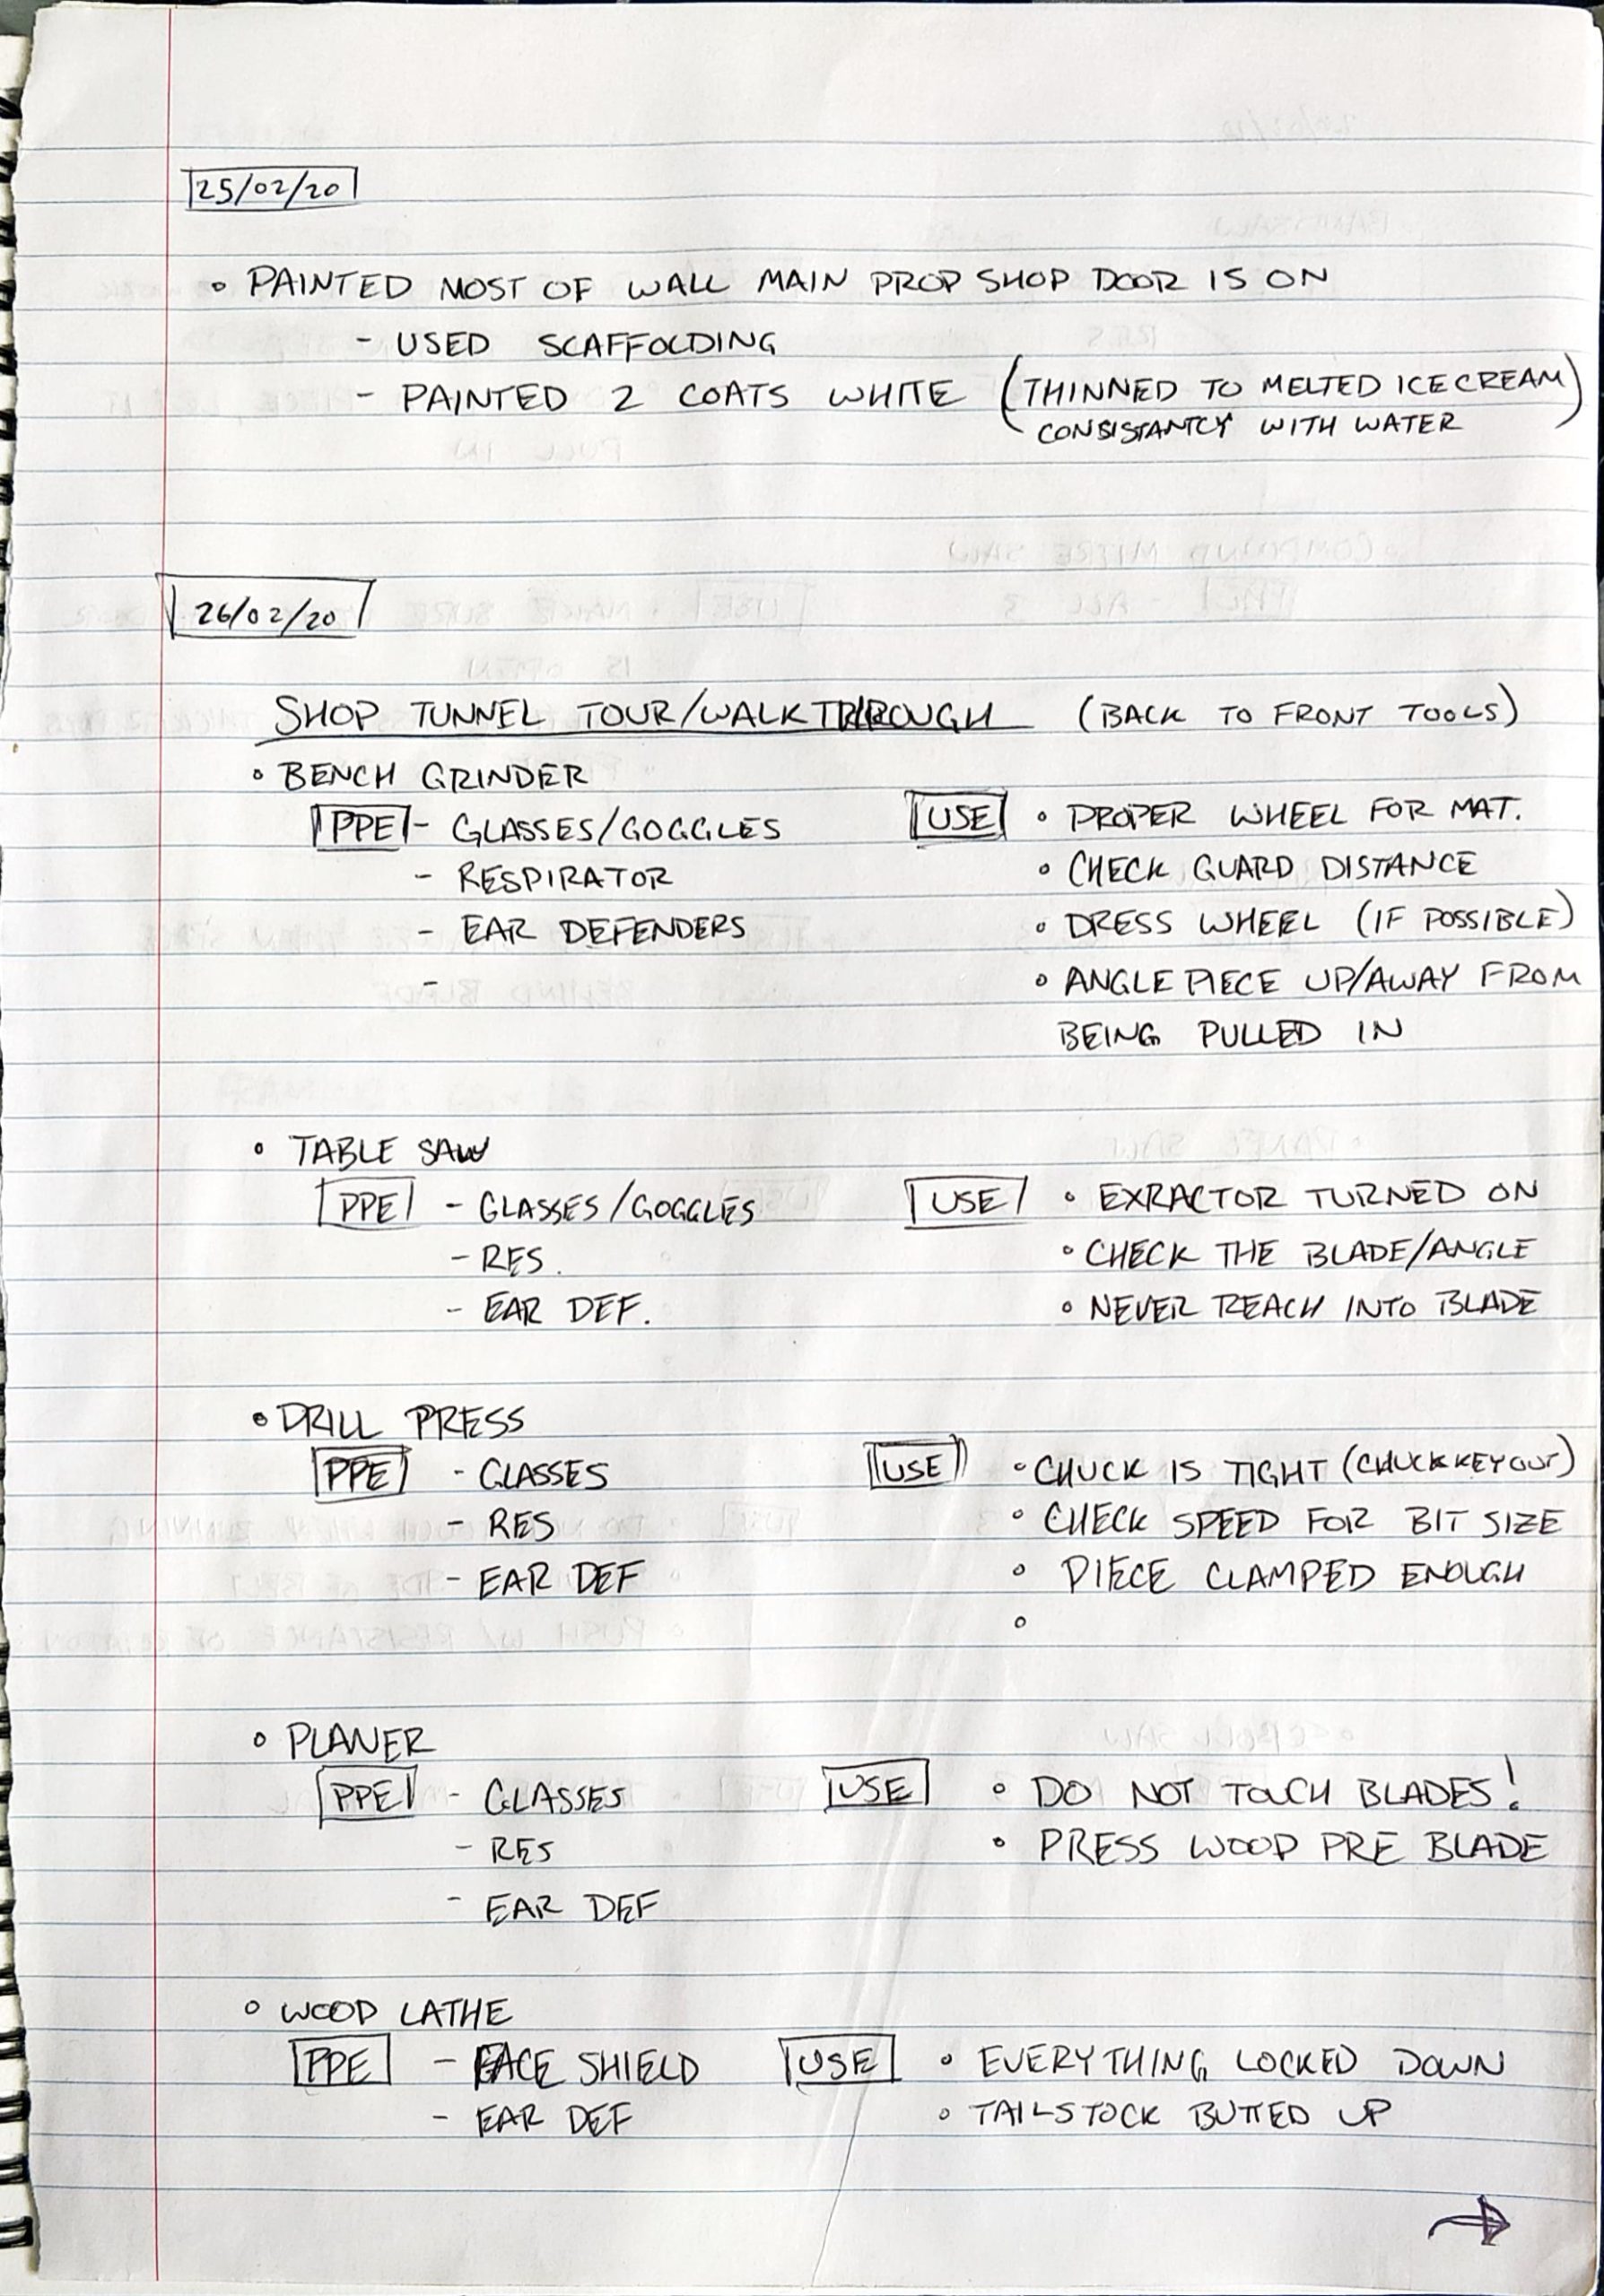 25/02/20
◦ PAINTED MOST OF WALL MAIN PROP SHOP DOOR IS ON
- USED SCAFFOLDING
- PAINTED 2 COATS WHITE (THINNED TO MELTED ICE CREAM)
CONSISTANTCY WITH WATER
26/02/20
SHOP TUNNEL TOUR/WALKTHROUGH (BACK TO FRONT TOOLS)
◦ BENCH GRINDER
PPE - GLASSES/GOGGLES USE ◦ PROPER WHEEL FOR MAT.
- RESPIRATOR ◦ CHECK GUARD DISTANCE
- EAR DEFENDERS ◦ DRESS WHEEL (IF POSSIBLE)
- ◦ ANGLE PIECE UP/AWAY FROM
BEING PULLED IN
◦ TABLE SAW
PPE - GLASSES/GOGGLES USE ◦ EXRACTOR TURNED ON
- RES. ◦ CHECK THE BLADE/ANGLE
- EAR DEF. ◦ NEVER REACH INTO BLADE
◦ DRILL PRESS
PPE - GLASSES USE ◦ CHUCK IS TIGHT (CHUCK KEY OUT)
- RES ◦ CHECK SPEED FOR BIT SIZE
- EAR DEF ◦ PIECE CLAMPED ENOUGH
◦
◦ PLANER
PPE - GLASSES USE ◦ DO NOT TOUCH BLADES!
- RES ◦ PRESS WOOD PRE BLADE
- EAR DEF
◦ WOOD LATHE
PPE - FACE SHIELD USE ◦ EVERYTHING LOCKED DOWN
- EAR DEF ◦ TAILSTOCK BUTTED UP
→